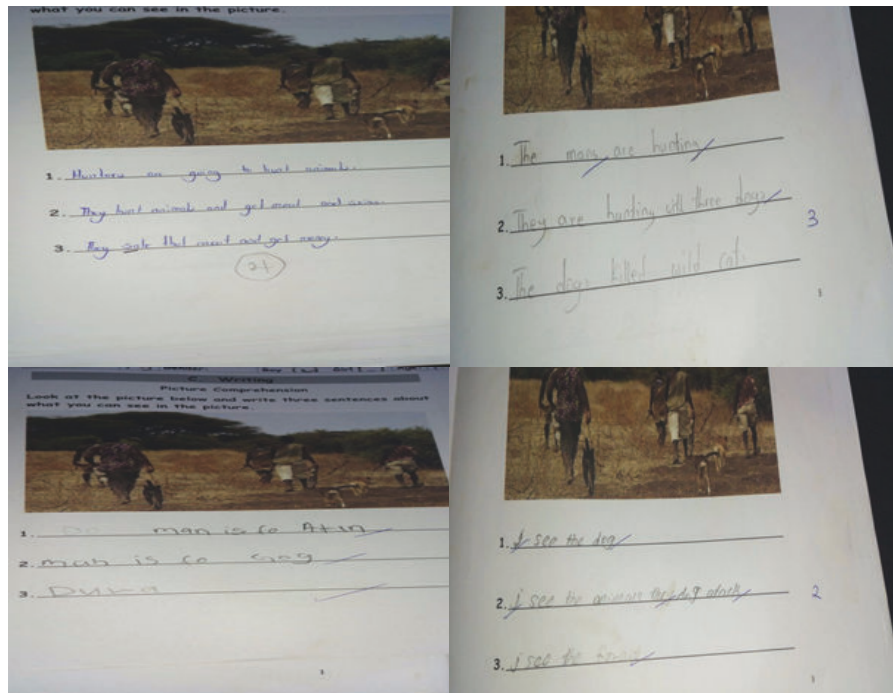 what you can see in the picture.
1. Hunters are going to hunt animals.
2. They hunt animals and get meat and skins.
3. They sale that meat and get money.
1. The mans are hunting
2. They are hunting with three dogs
3
3. The dogs killed wild cat.
1
C. Writing
Picture Comprehension
Look at the picture below and write three sentences about
what you can see in the picture.
1. man is co
2. man is co
3.
1
1. I see the dog
2. I see the animals the dog atack
2
3. i see the
1